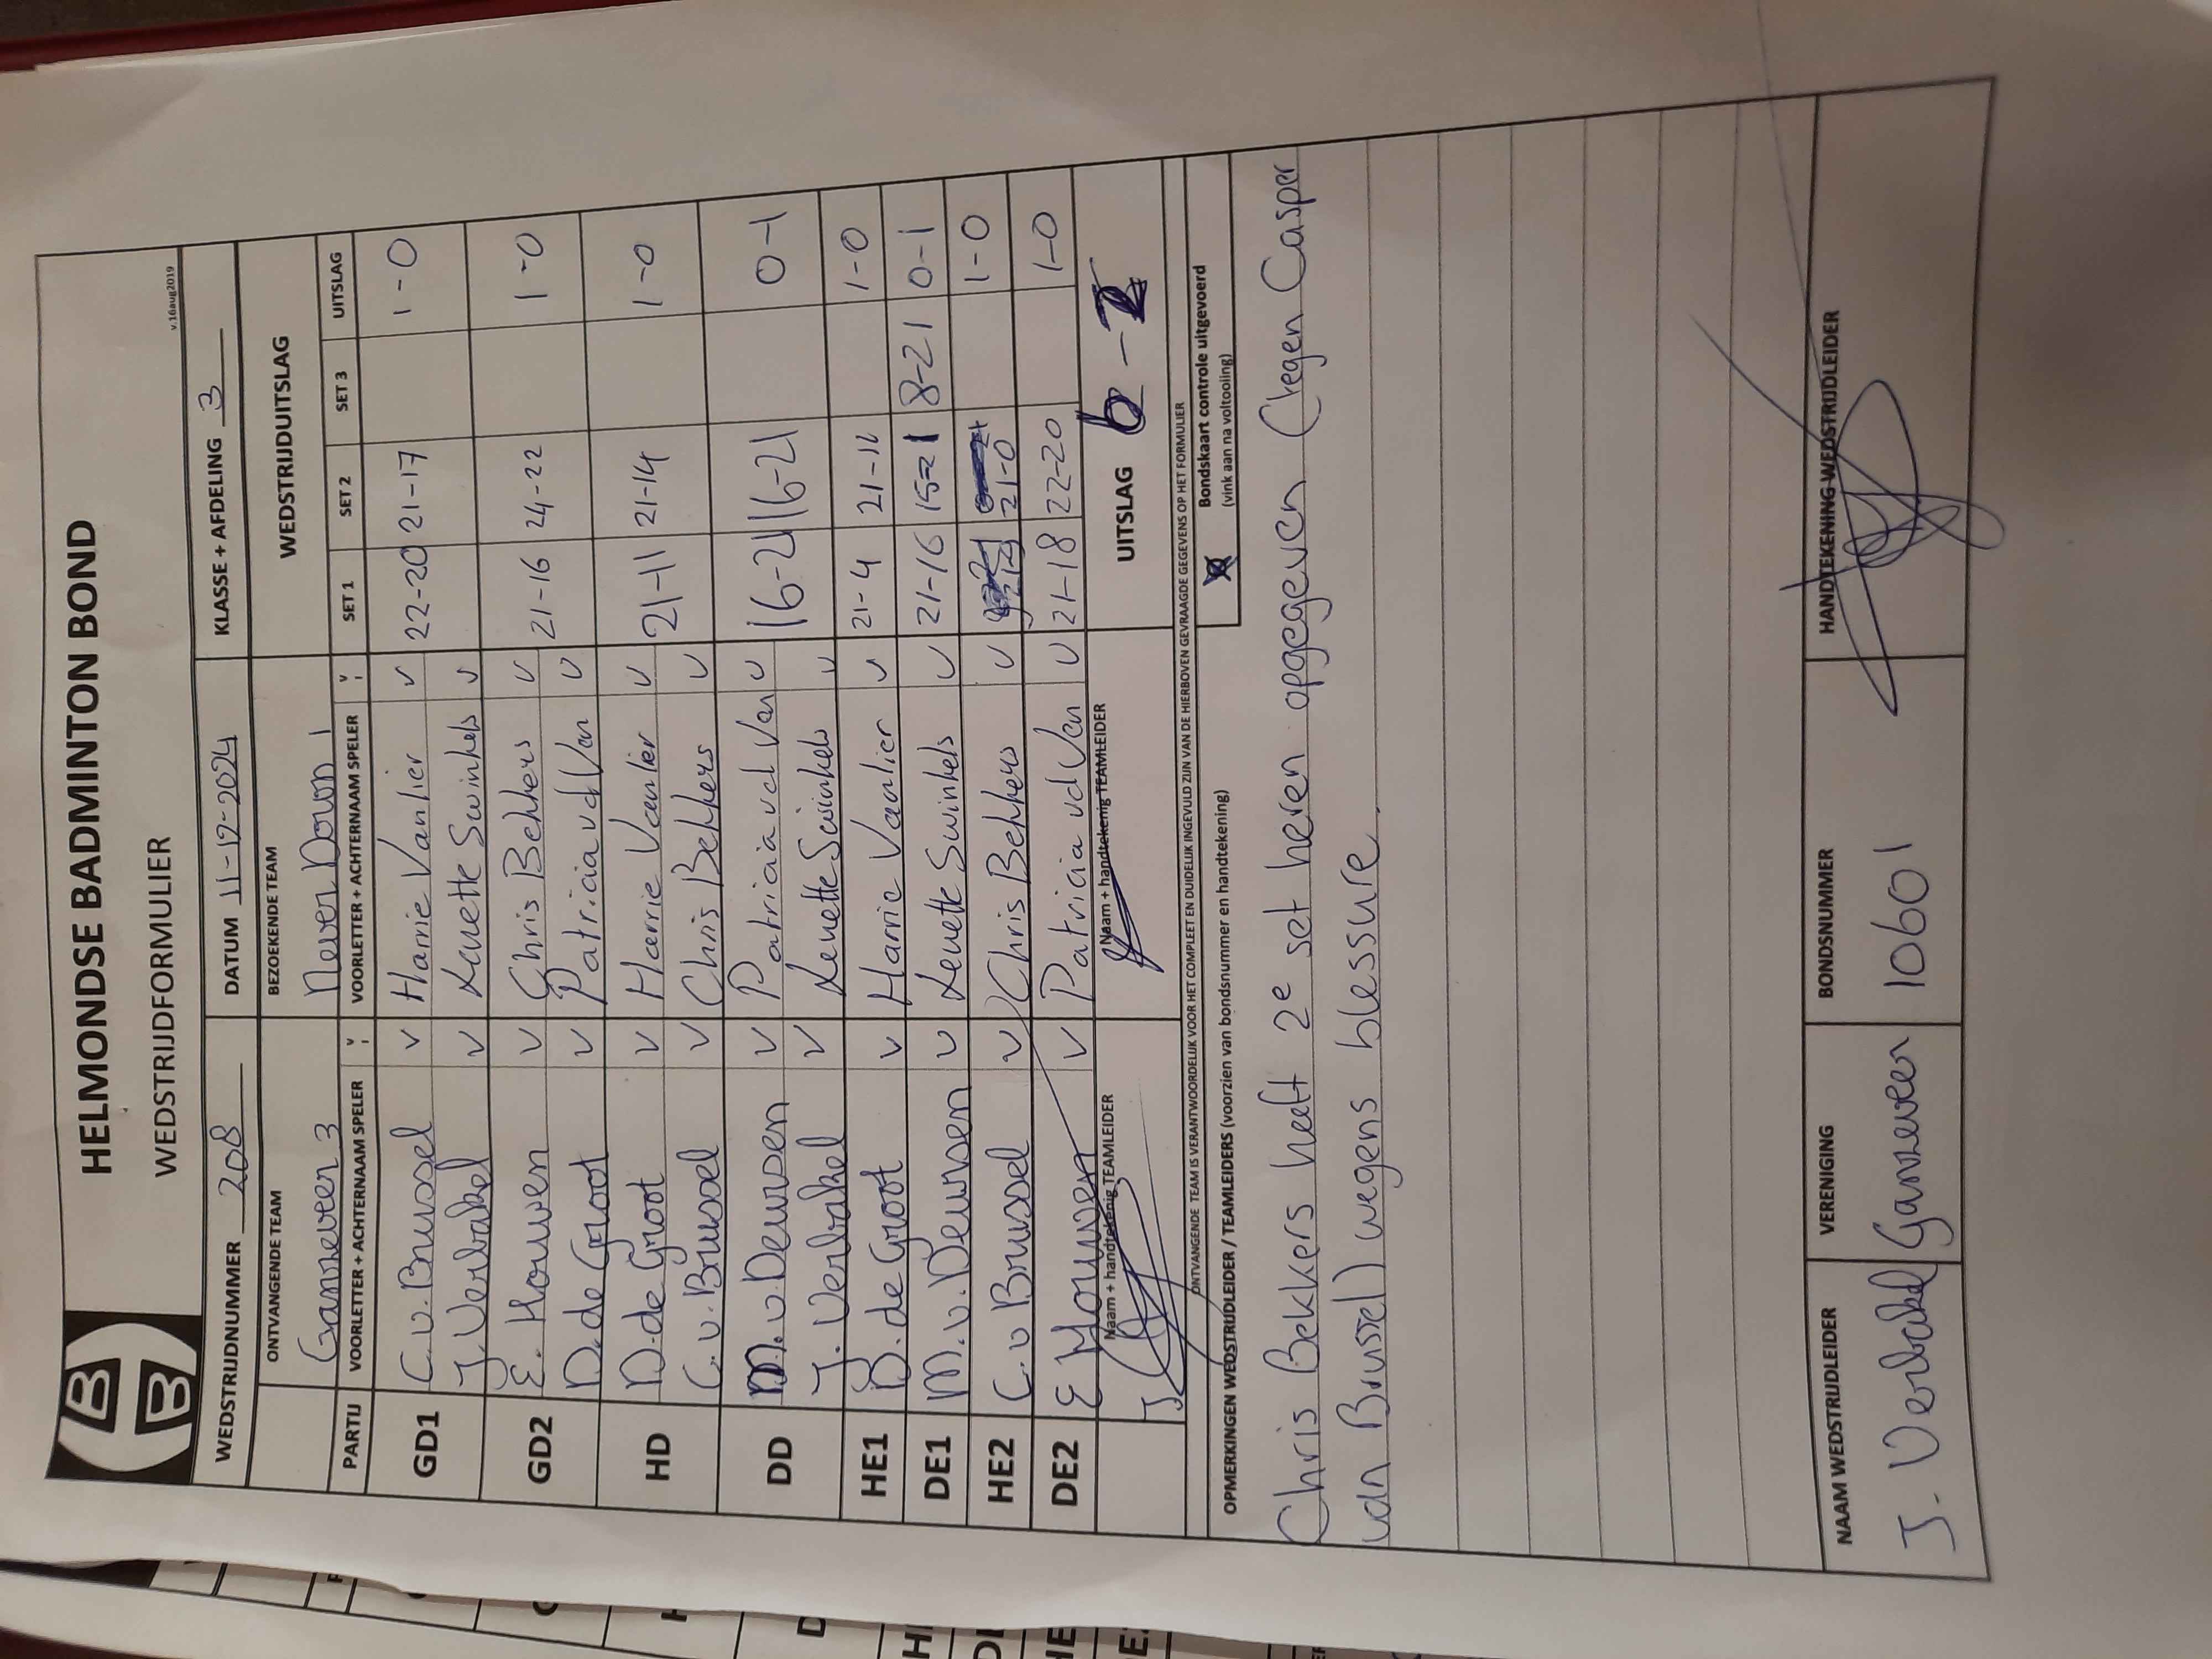 HELMONDSE BADMINTON BOND
WEDSTRIJDFORMULIER
v.16aug2019
WEDSTRIJDNUMMER 208 DATUM 11-12-2024 KLASSE + AFDELING 3
ONTVANGENDE TEAM BEZOEKENDE TEAM WEDSTRIJDUITSLAG
Ganzeveer 3 Never Down 1
PARTIJ VOORLETTER + ACHTERNAAM SPELER v VOORLETTER + ACHTERNAAM SPELER v SET 1 SET 2 SET 3 UITSLAG
GD1 C. v. Brussel v Harrie Vanlier v 22-20 21-17 1-0
J. Verbakel v Lenette Swinkels v
GD2 E. Houwen v Chris Bekkers v 21-16 24-22 1-0
D. de Groot v Patricia vd Ven v
HD D. de Groot v Harrie Vanlier v 21-11 21-14 1-0
C. v. Brussel v Chris Bekkers v
DD M. v. Deursen v Patricia vd Ven v 16-21 16-21 0-1
J. Verbakel v Lenette Swinkels v
HE1 D. de Groot v Harrie Vanlier v 21-4 21-12 1-0
DE1 M. v. Deursen v Lenette Swinkels v 21-16 15-21 8-21 0-1
HE2 C. v Brussel v Chris Bekkers v 21-0 1-0
DE2 E Houwen v Patricia vd Ven v 21-18 22-20 1-0
Naam + handtekenig TEAMLEIDER Naam + handtekenig TEAMLEIDER UITSLAG 6 - 2
ONTVANGENDE TEAM IS VERANTWOORDELIJK VOOR HET COMPLEET EN DUIDELIJK INGEVULD ZIJN VAN DE HIERBOVEN GEVRAAGDE GEGEVENS OP HET FORMULIER
OPMERKINGEN WEDSTRIJDLEIDER / TEAMLEIDERS (voorzien van bondsnummer en handtekening) Bondskaart controle uitgevoerd
(vink aan na voltooiing)
Chris Bekkers heeft 2e set heren opgegeven (tegen Casper
van Brussel) wegens blessure.
NAAM WEDSTRIJDLEIDER VERENIGING BONDSNUMMER HANDTEKENING WEDSTRIJDLEIDER
J. Verbakel Ganzeveer 10601